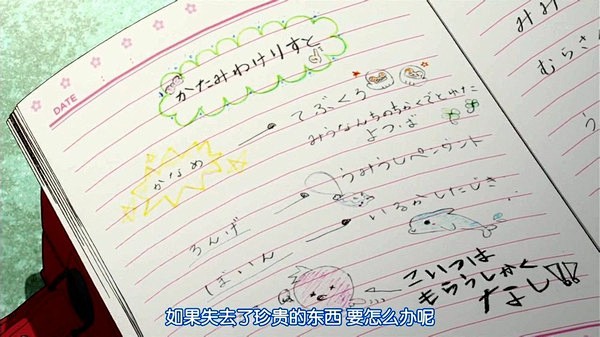 DATE
かたみわけリスト
かなめ
てぶくろ
みうなんちのちかくでとれた
よつば
うみうしペンダント
ろんげ
いるかしたじき
ばいん
こいつは
もらうしかく
なし!!
みみ
むらさ
う
如果失去了珍贵的东西 要怎么办呢